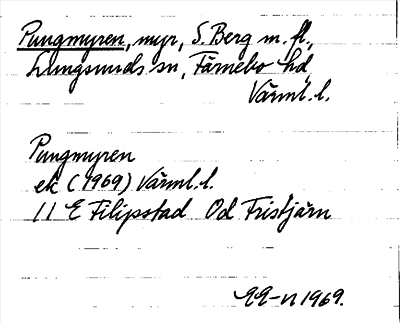 Pungmyren, myr, S. Berg m. fl.,
Lungsunds sn, Färnebo hd,
Värml. l.
Pungmyren
ek (1969) Värml. l.
11 E Filipstad Od Fristjärn
1969.